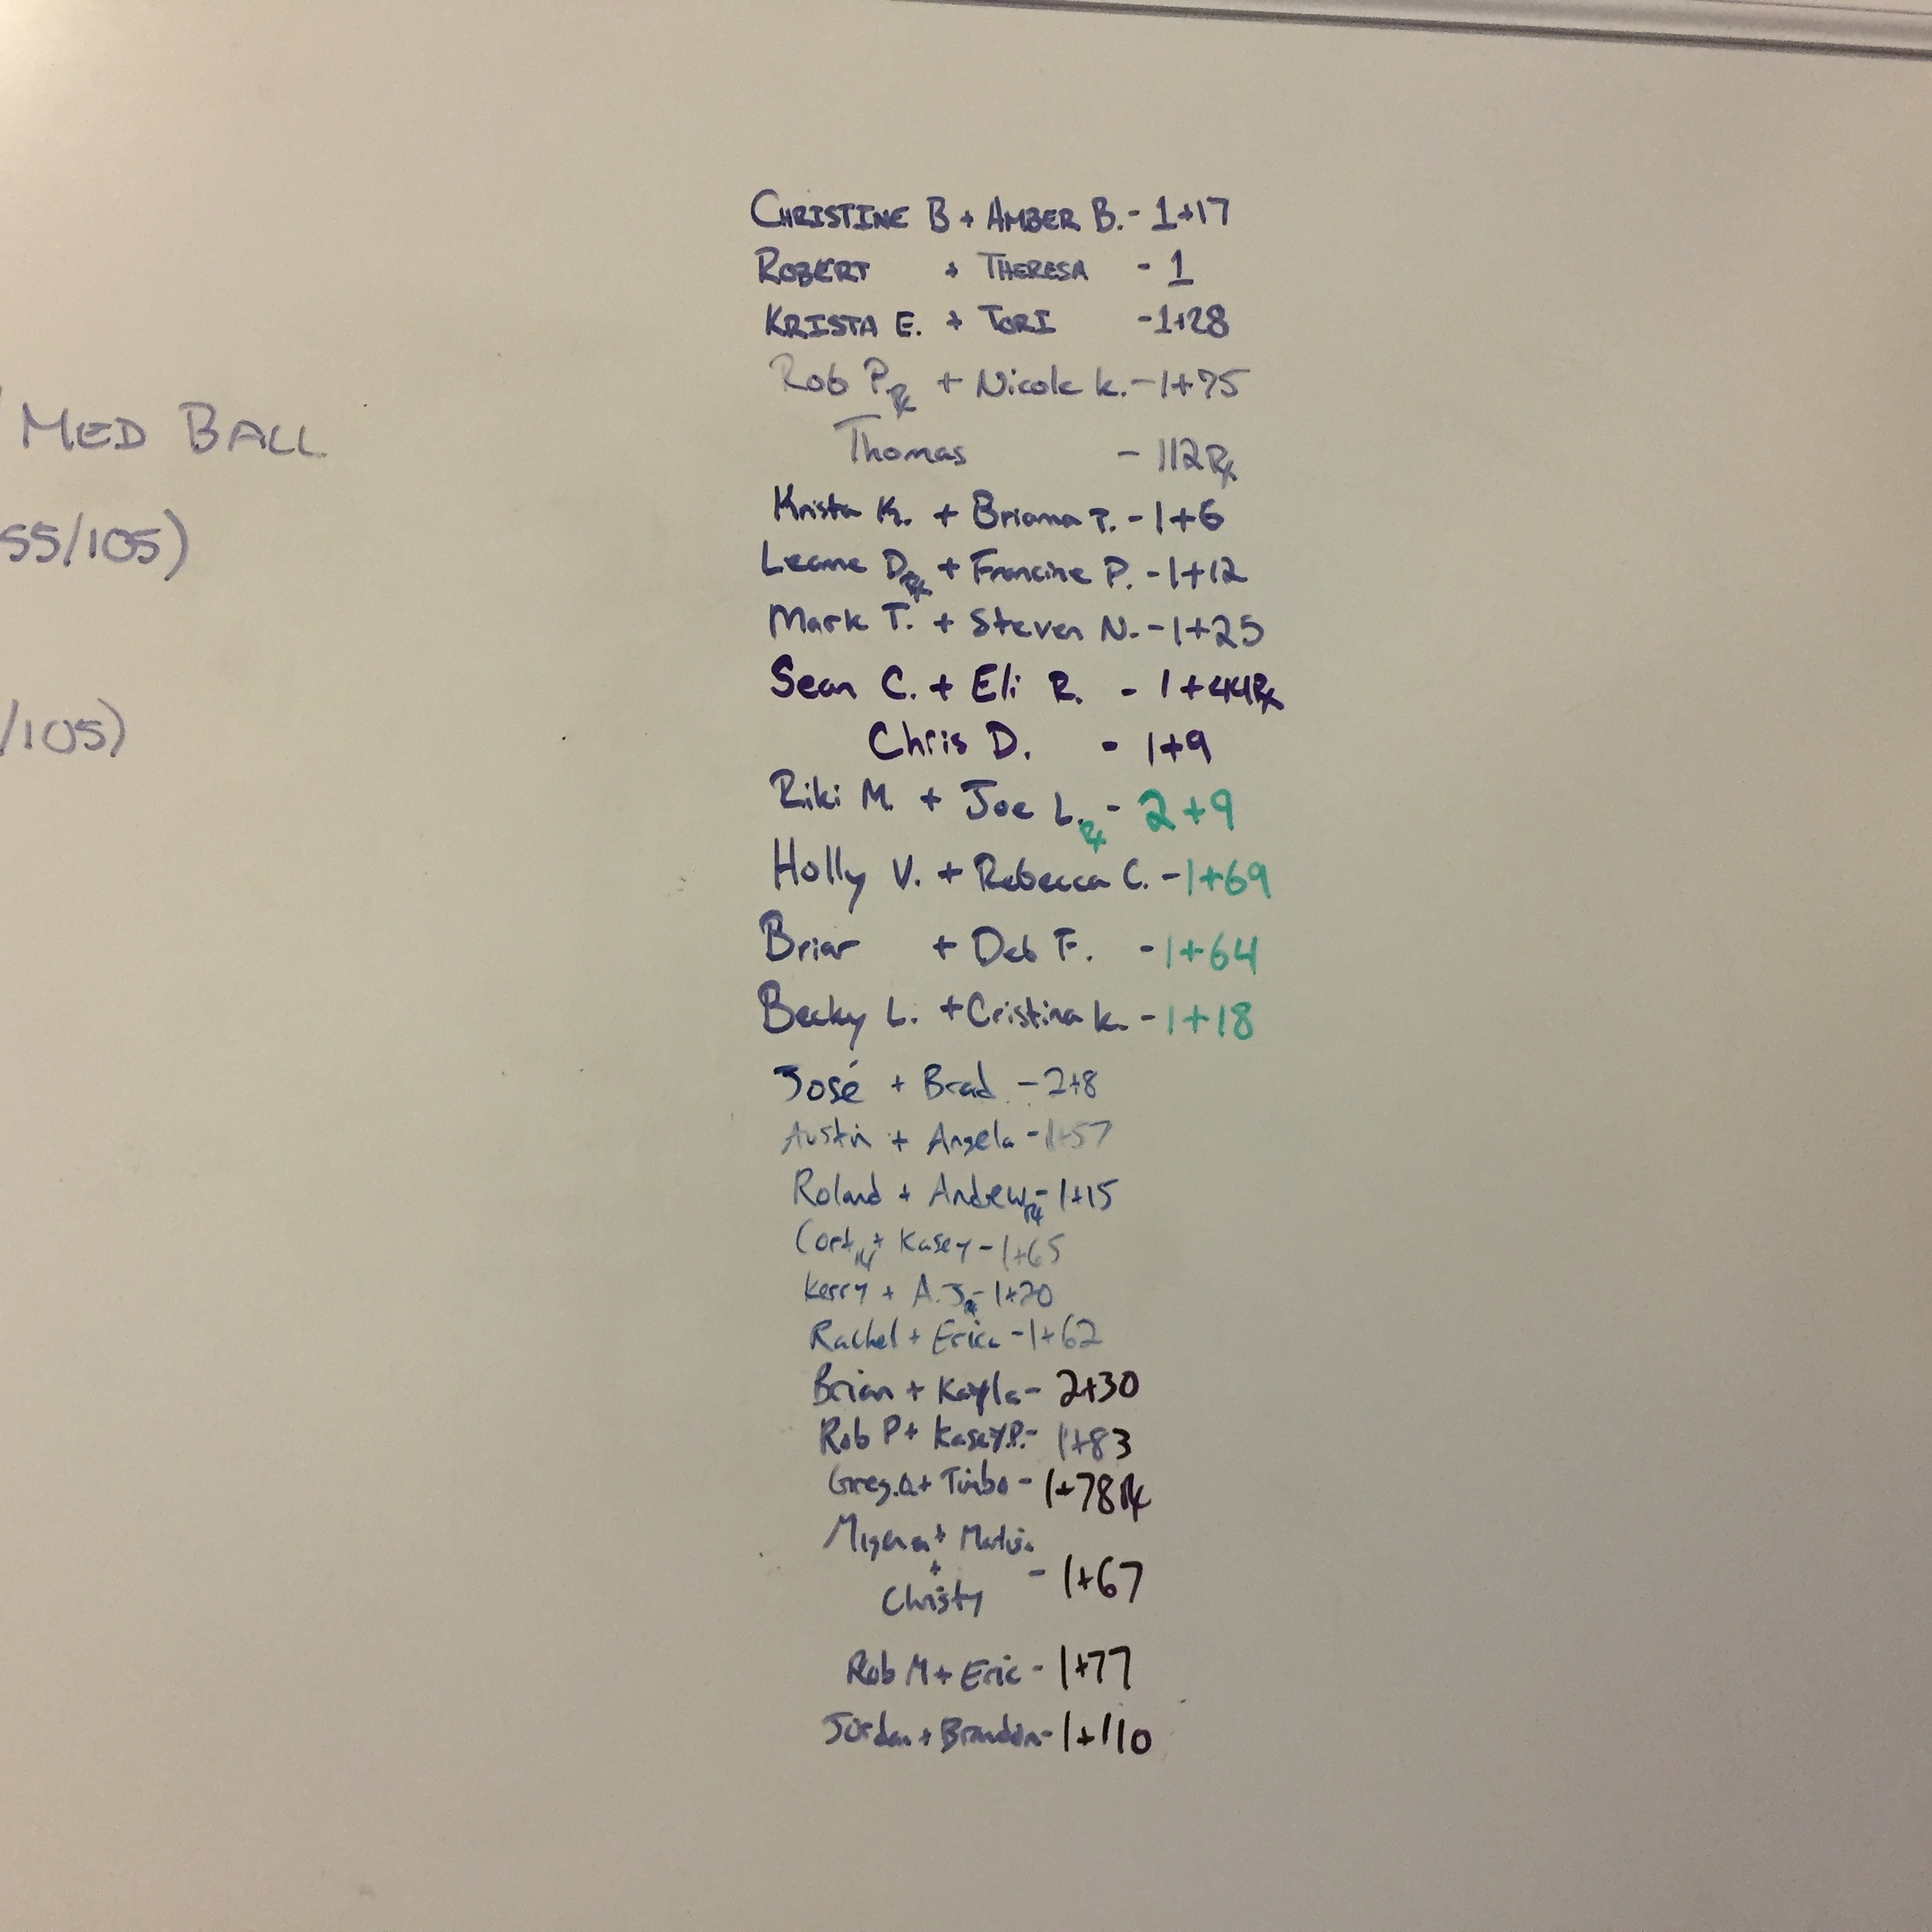 MED BALL
55/105)
/105)
CHRISTINE B + AMBER B. - 1+17
ROBERT + THERESA - 1
KRISTA E. + TORI - 1+28
Rob P. Rx + Nicole K. - 1+75
Thomas - 112 Rx
Krista K. + Briana T. - 1+6
Leanne D. Rx + Francine P. - 1+12
Mark T. + Steven N. - 1+25
Sean C. + Eli R. - 1+44 Rx
Chris D. - 1+9
Riki M. + Joe L. Rx - 2+9
Holly V. + Rebecca C. - 1+69
Briar + Deb F. - 1+64
Becky L. + Cristina K. - 1+18
José + Brad - 2+8
Austin + Angela - 1+57
Roland + Andrew Rx - 1+15
Cort Rx + Kasey - 1+65
Kerry + A.J. Rx - 1+20
Rachel + Erica - 1+62
Brian + Kayla - 2+30
Rob P + Kasey P. - 1+83
Greg. + - 1+78 Rx
+
+
Christy - 1+67
Rob M + Eric - 1+77
Jordan + Brandon - 1+110